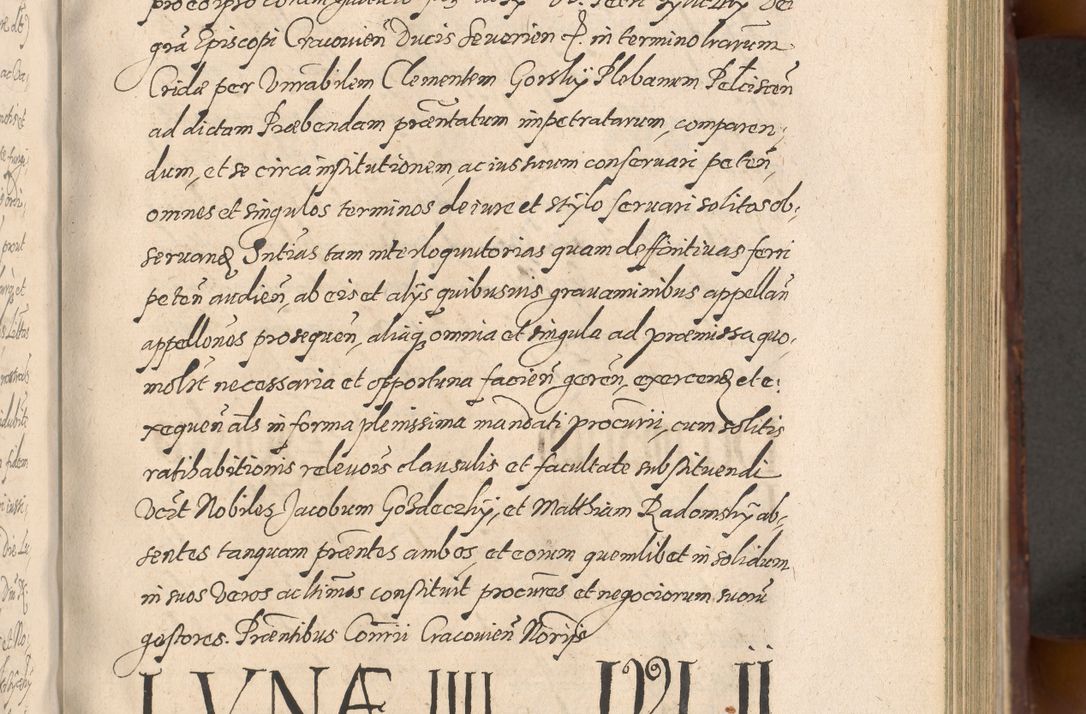 grã Episcopi Cracovieñ Ducis Severieñ &. in termino lrarum
Cridæ per Vnrabilem Clementem Gorskÿ Plebanum Pelciscen̄
ad dictam Præbendam præn̄tatum impetratarum, comparen,
dum, et se circa institutionem, ac ius suum conservari peteñ,
omnes et singulos terminos de iure et stÿlo servari solitos ob,
servanđ, Sntias tam interloquutorias quam deffinitivas ferri
peteñ audieñ, ab eis et alijs quibusvis gravaminibus appellañ
appellonos prosequeñ, aliaq omnia et singula ad præmissa quo,
modolt necessaria et opportuna facieñ gereñ, exercenđ et e,
xequeñ als in forma plenissima mandati procurii, cum solitis
ratihabitionis relevois clausulis et facultate substituendi
Vczt Nobiles Jacobum Gozdeczkÿ, et Matthiam Radomskÿ ab,
sentes tanquam præntes ambos, et eorum quemlibet in solidum
in suos veros ac ltimos constituit procures et negociorum suorū
gestores. Præntibus Cōmrii Cracovieñ Noriis
LVNÆ IIII IVLII